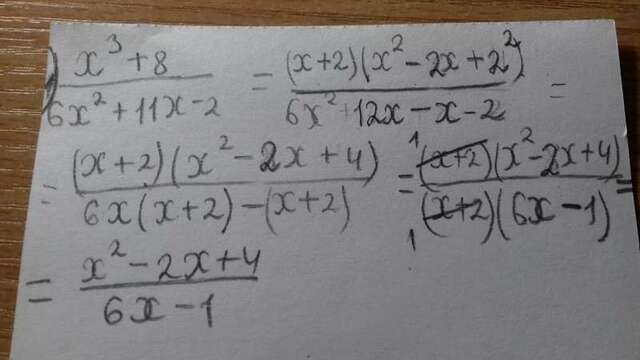 ) (x³+8)/(6x²+11x-2) = ((x+2)(x²-2x+2²))/(6x²+12x-x-2) =
= ((x+2)(x²-2x+4))/(6x(x+2)-(x+2)) = (¹(x+2)(x²-2x+4))/(₁(x+2)(6x-1)) =
= (x²-2x+4)/(6x-1)